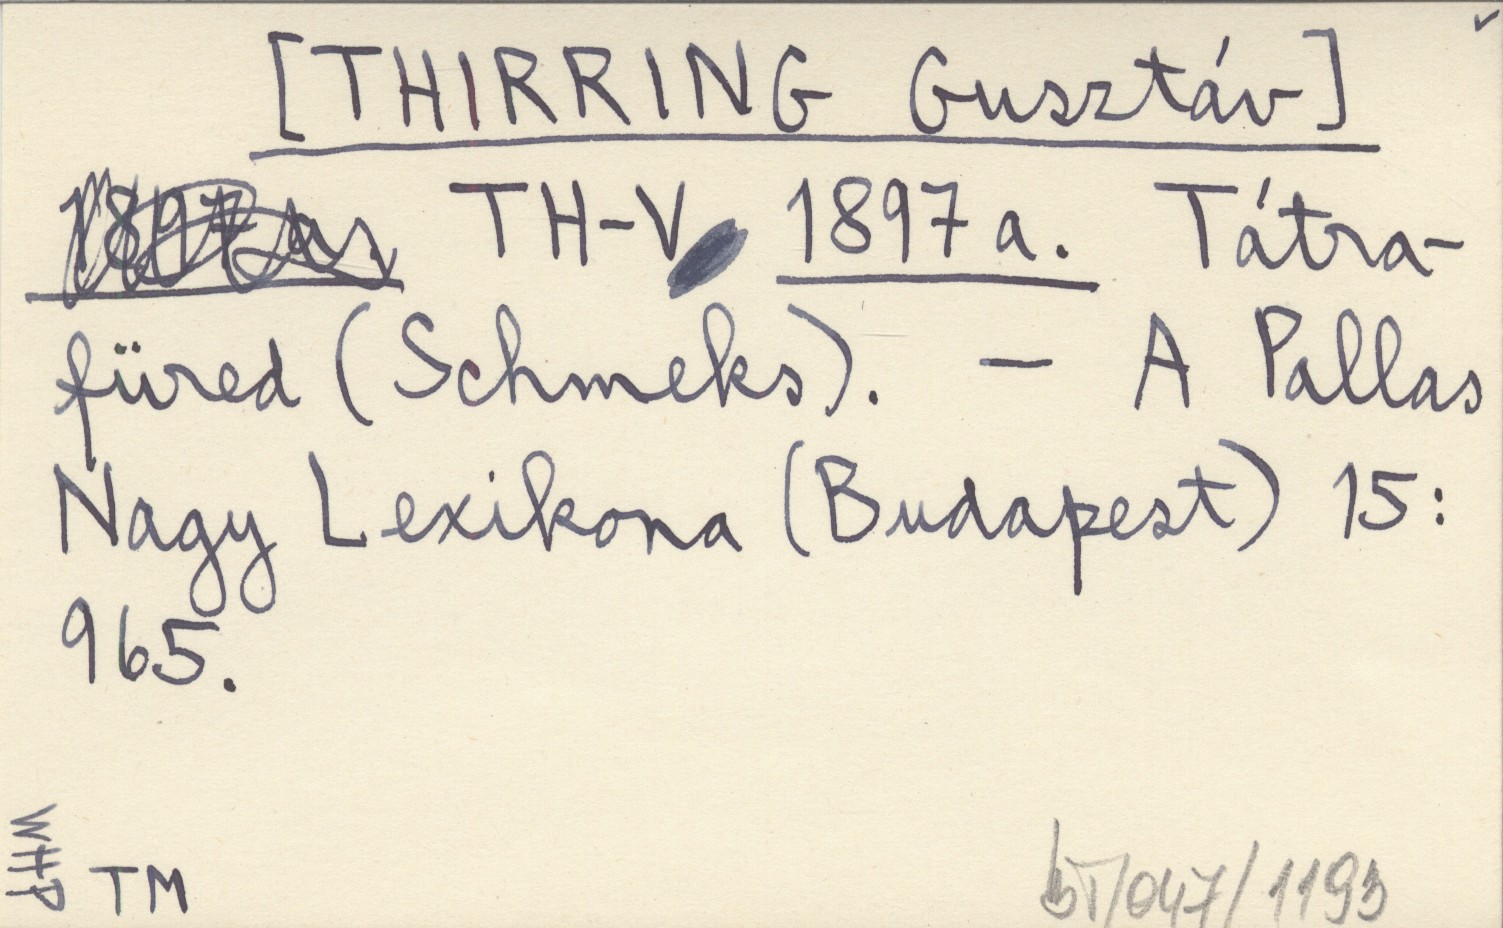 [THIRRING Gusztáv]
TH-V 1897 a. Tátra-
füred (Schmeks). — A Pallas
Nagy Lexikona (Budapest) 15:
965.
WHP
TM
/047/1193